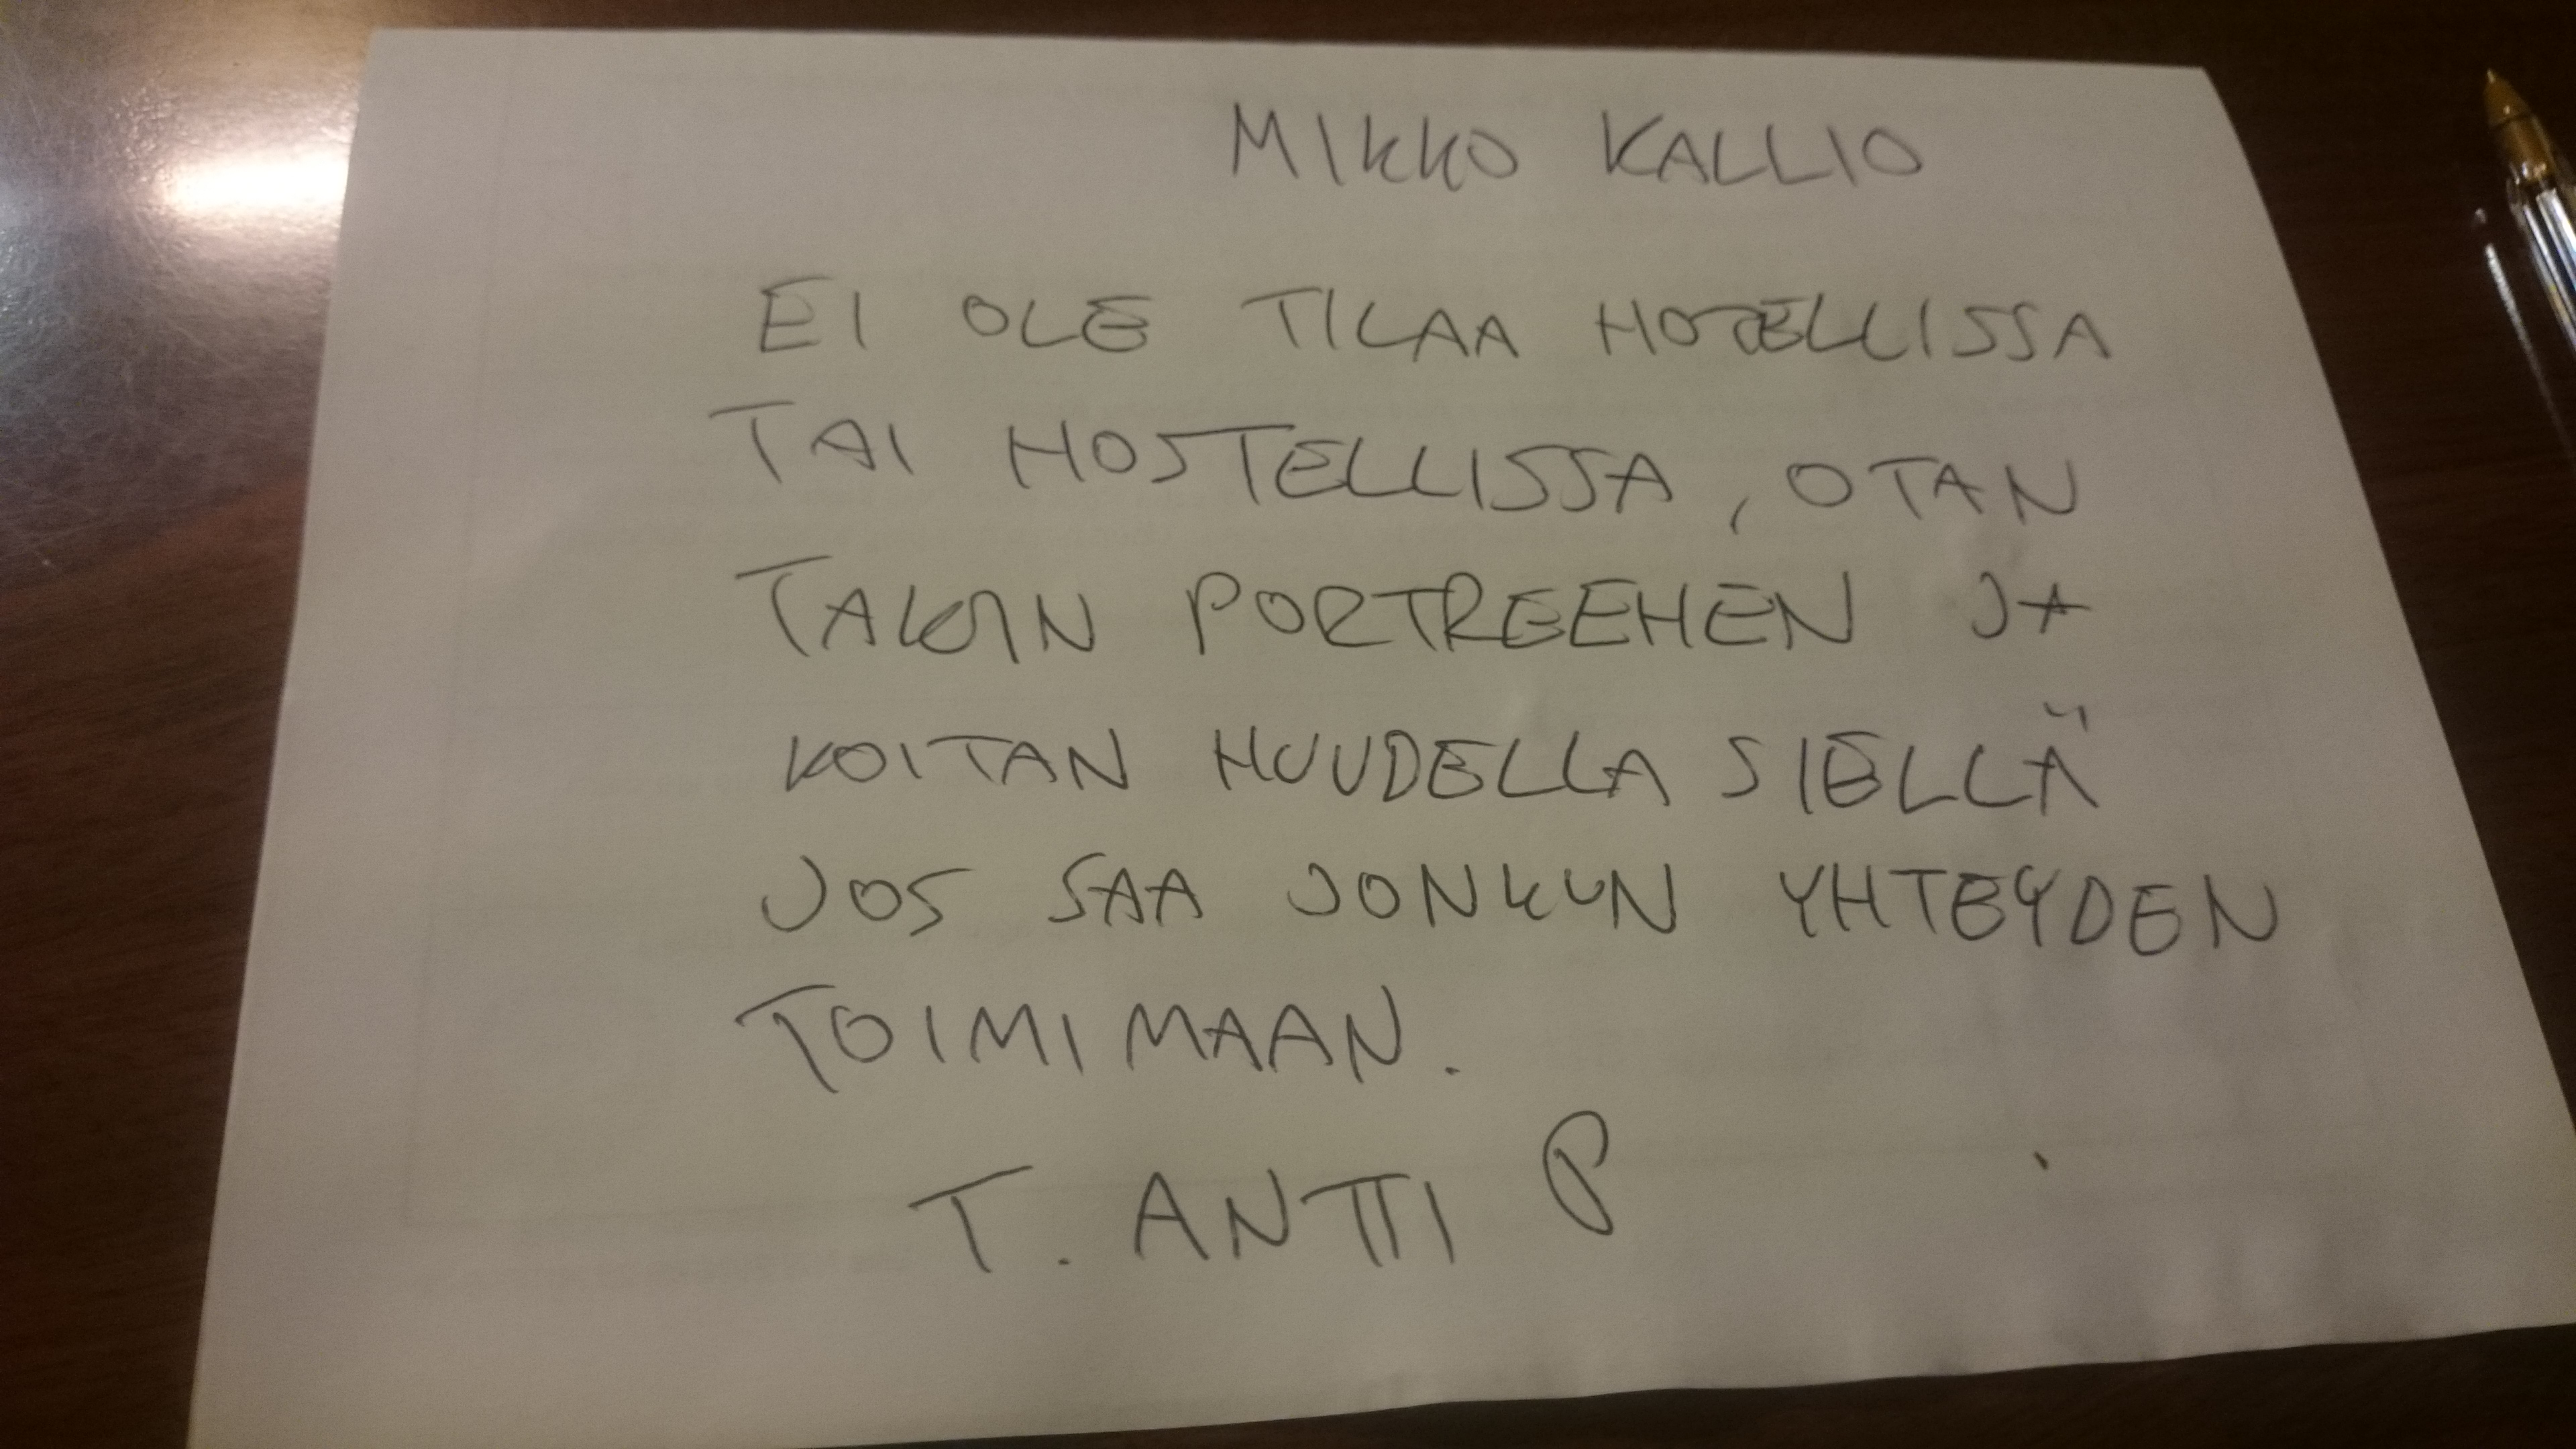 MIKKO KALLIO
EI OLE TILAA HOTELLISSA
TAI HOSTELLISSA, OTAN
TAKSIN PORTREEHEN JA
KOITAN HUUDELLA SIELLÄ
JOS SAA JONKUN YHTEYDEN
TOIMIMAAN.
T. ANTTI P